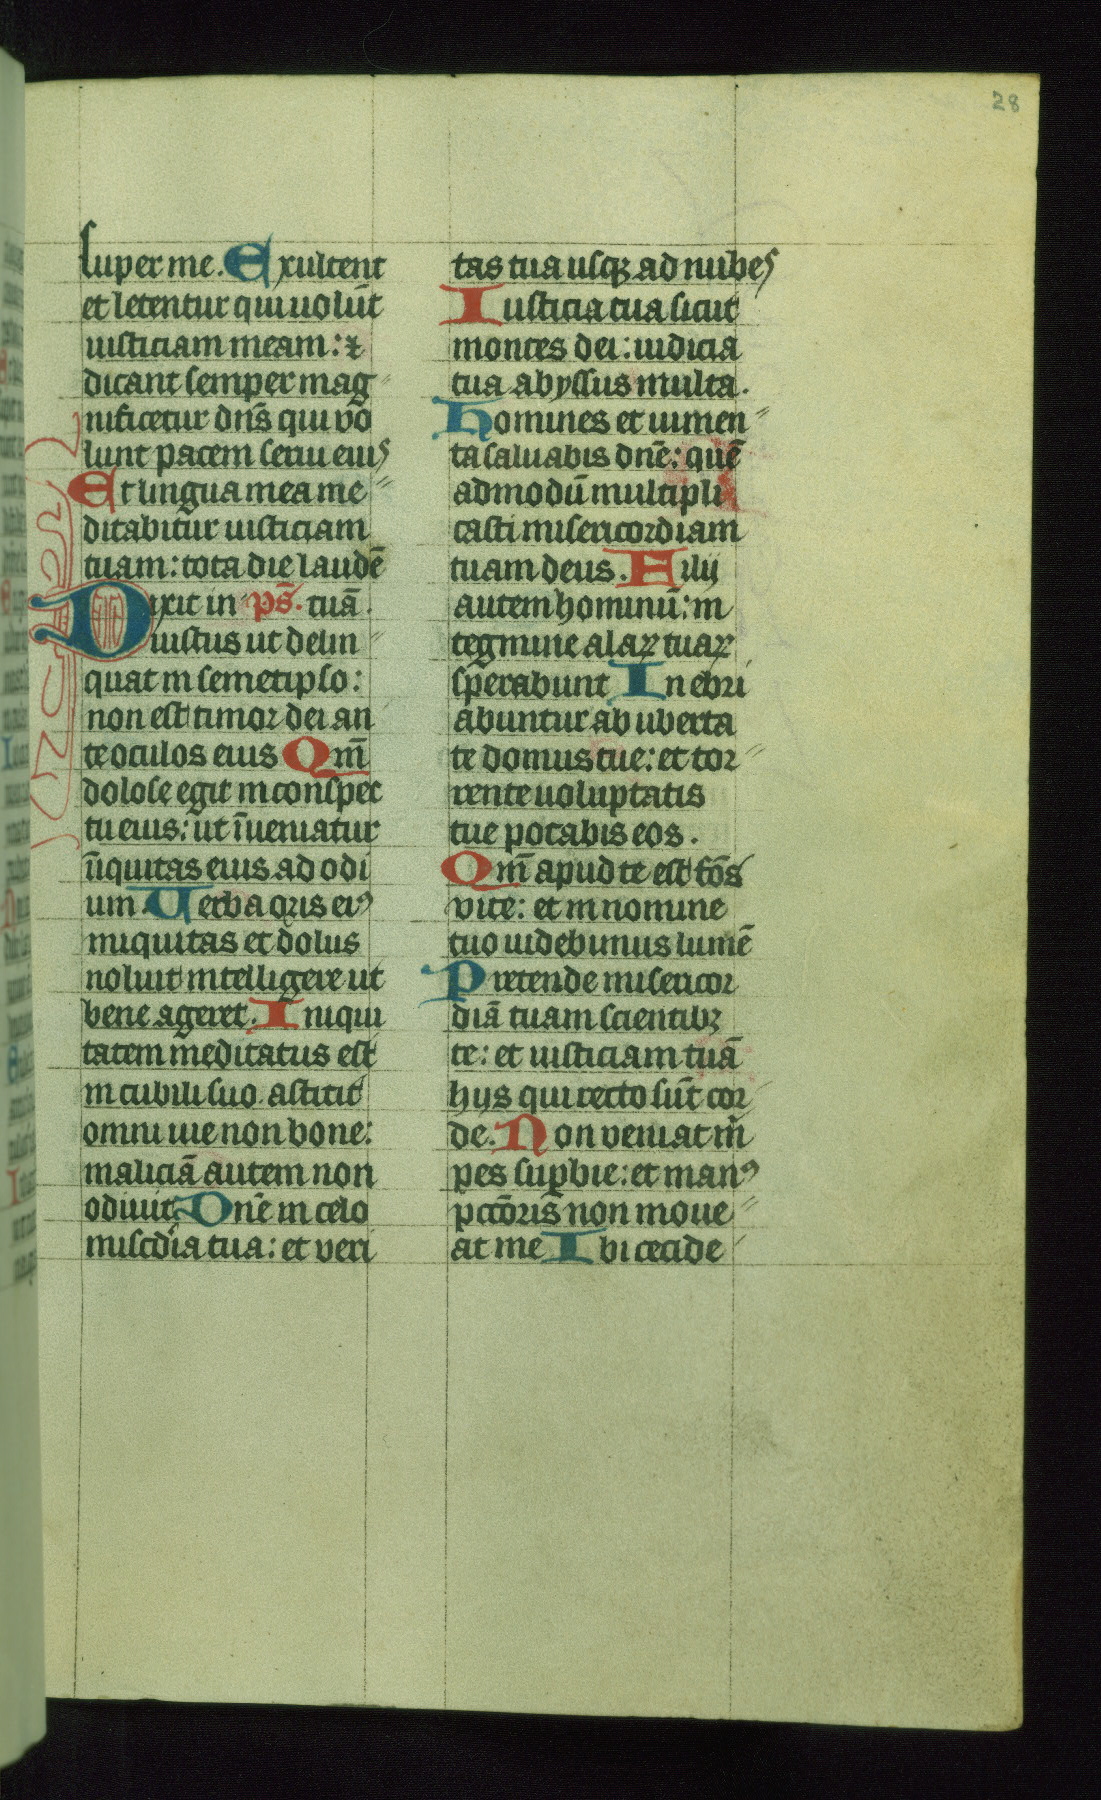 28
super me. Exultent
et letentur qui uolūt
iusticiam meam: ⁊
dicant semper mag
nificetur dn̄s qui vo
lunt pacem serui eius
Et lingua mea me
ditabitur iusticiam
tuam: tota die laudē
Dixit in ps̄. tuā.
iniustus ut delin
quat in semetipso:
non est timor dei an
te oculos eius Qm̄
dolose egit in conspec
tu eius: ut īueniatur
īiquitas eius ad odi
um. Uerba oris eiꝰ
iniquitas et dolus
noluit intelligere ut
bene ageret. Iniqui
tatem meditatus est
in cubili suo. astitit
omni uie non bone:
maliciā autem non
odiuit. Dn̄e in celo
miscd̄ia tua: et veri
tas tua usqꝫ ad nubes
Iusticia tua sicut
montes dei: iudicia
tua abyssus multa.
Homines et iumen
ta saluabis dn̄e: quē
admodū multipli
casti misericordiam
tuam deus. Filij
autem hominū: in
tegmine alaꝝ tuaꝝ
sperabunt Inebri
abuntur ab uberta
te domus tue: et tor
rente uoluptatis
tue potabis eos.
Qm̄ apud te est fōs
vite: et in nomine
tuo uidebimus lumē
Pretende misericor
diā tuam scientibꝫ
te: et iusticiam tuā
hijs qui recto sūt cor
de. Non veniat m̄
pes suꝑbie: et manꝰ
pctōris non moue
at me Ibi cecide